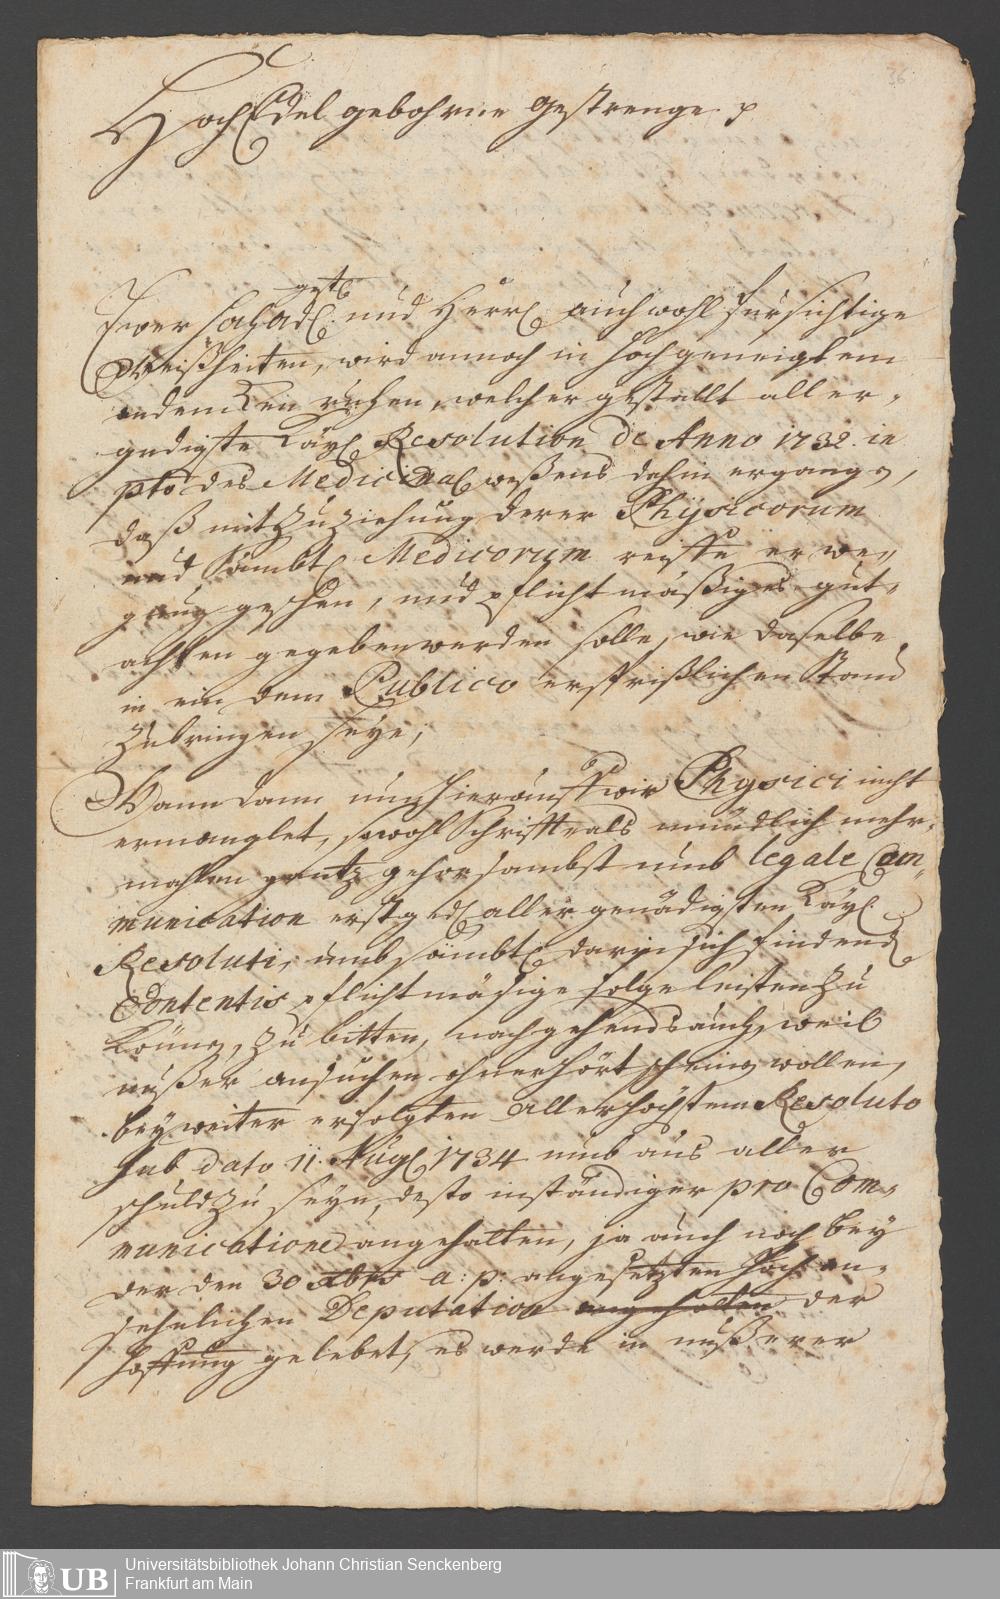 36
HochEdel gebohrne Gestrenge p
gest.
Ewer und Herrl auch wohl fürsichtige
Weißheiten, wird annoch in hochgeneigtem
andencken ruhen, welcher gestallt aller-
gndigste Kayl Resolution de Anno 1732. in
pto des Medicinal weßens dahin ergangen,
daß mit Zuziehung derer Physicorum
und sämbtl Medicorum reiffe erwe-
gung geschen, und pflichtmäßiges gut-
achten gegeben werden solle, wie daselbe
in ein dem Publico ersprißlichen Stand
zubringen seye,
Wann dann nun hierauff wir Physici nicht
ermanglet, sowohl Schrifft als mündlich mehr-
mahlen gantz gehorsambst umb legale Com-
munication erstged allergenädigsten Kayl
Resoluti, umb sämbtl darin sich findende
Contentis pflichtmäsige folge leisten zu
können, zu bitten, nachgehends auch, weil
unßer ansuchen ohnerhört scheinen wollen,
bey weiter erfolgten Allerhöchstem Resoluto
sub dato 11. Augl 1734 umb aus aller
schuld zu seyn, desto inständiger pro Com-
municatione angehalten, ja auch noch bey
der den 30 Xbris a: p: angesetzten hochan-
sehnlichen Deputation angehalten der
hoffnung gelebet, es werde in unßerer
UB Universitätsbibliothek Johann Christian Senckenberg
Frankfurt am Main